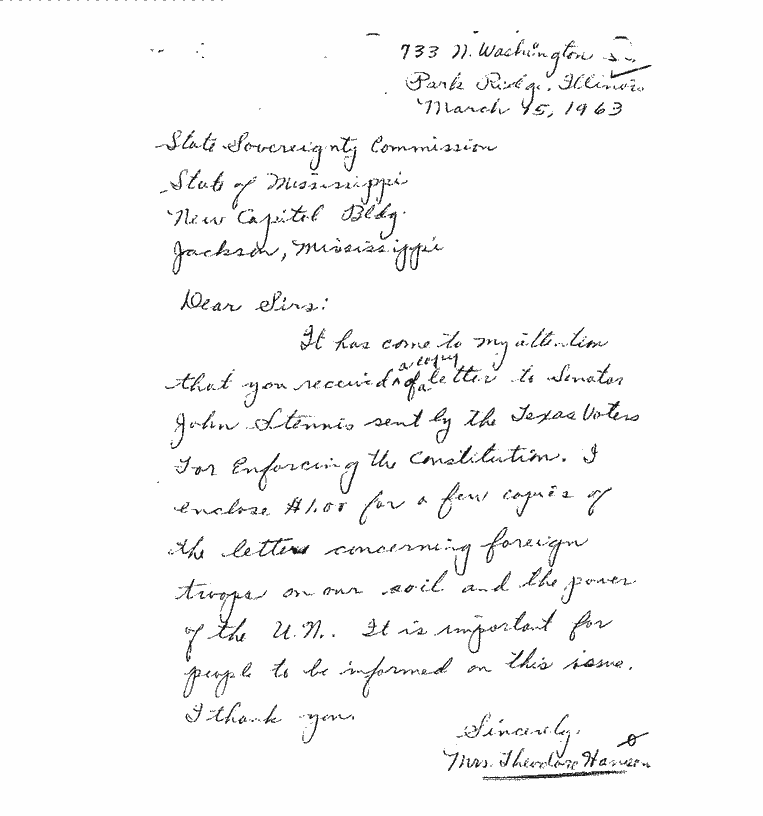 733 N. Washington S.
Park Ridge, Illinois
March 15, 1963
State Sovereignty Commission
State of Mississippi
New Capitol Bldg.
Jackson, Mississippi
Dear Sirs:
It has come to my attention
a copy
that you received of a letter to Senator
John Stennis sent by the Texas Voters
For Enforcing the Constitution. I
enclose $1.00 for a few copies of
the letters concerning foreign
troops on our soil and the power
of the U.N.. It is important for
people to be informed on this issue.
I thank you.
Sincerely,
Mrs. Theodore Hansen